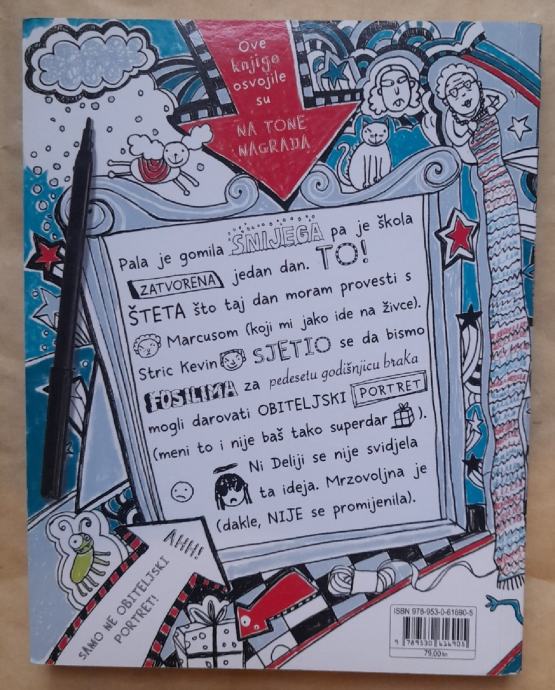 Ove
knjige
osvojile
su
NA TONE
NAGRADA
Pala je gomila SNIJEGA pa je škola
ZATVORENA jedan dan. TO!
ŠTETA što taj dan moram provesti s
Marcusom (koji mi jako ide na živce).
Stric Kevin SJETIO se da bismo
FOSILIMA za pedesetu godišnjicu braka
mogli darovati OBITELJSKI PORTRET
(meni to i nije baš tako superdar ).
Ni Deliji se nije svidjela
ta ideja. Mrzovoljna je
(dakle, NIJE se promijenila).
AHH!
SAMO NE OBITELJSKI
PORTRET!
ISBN 978-953-0-61690-5
9 789530 616905
79.00 kn